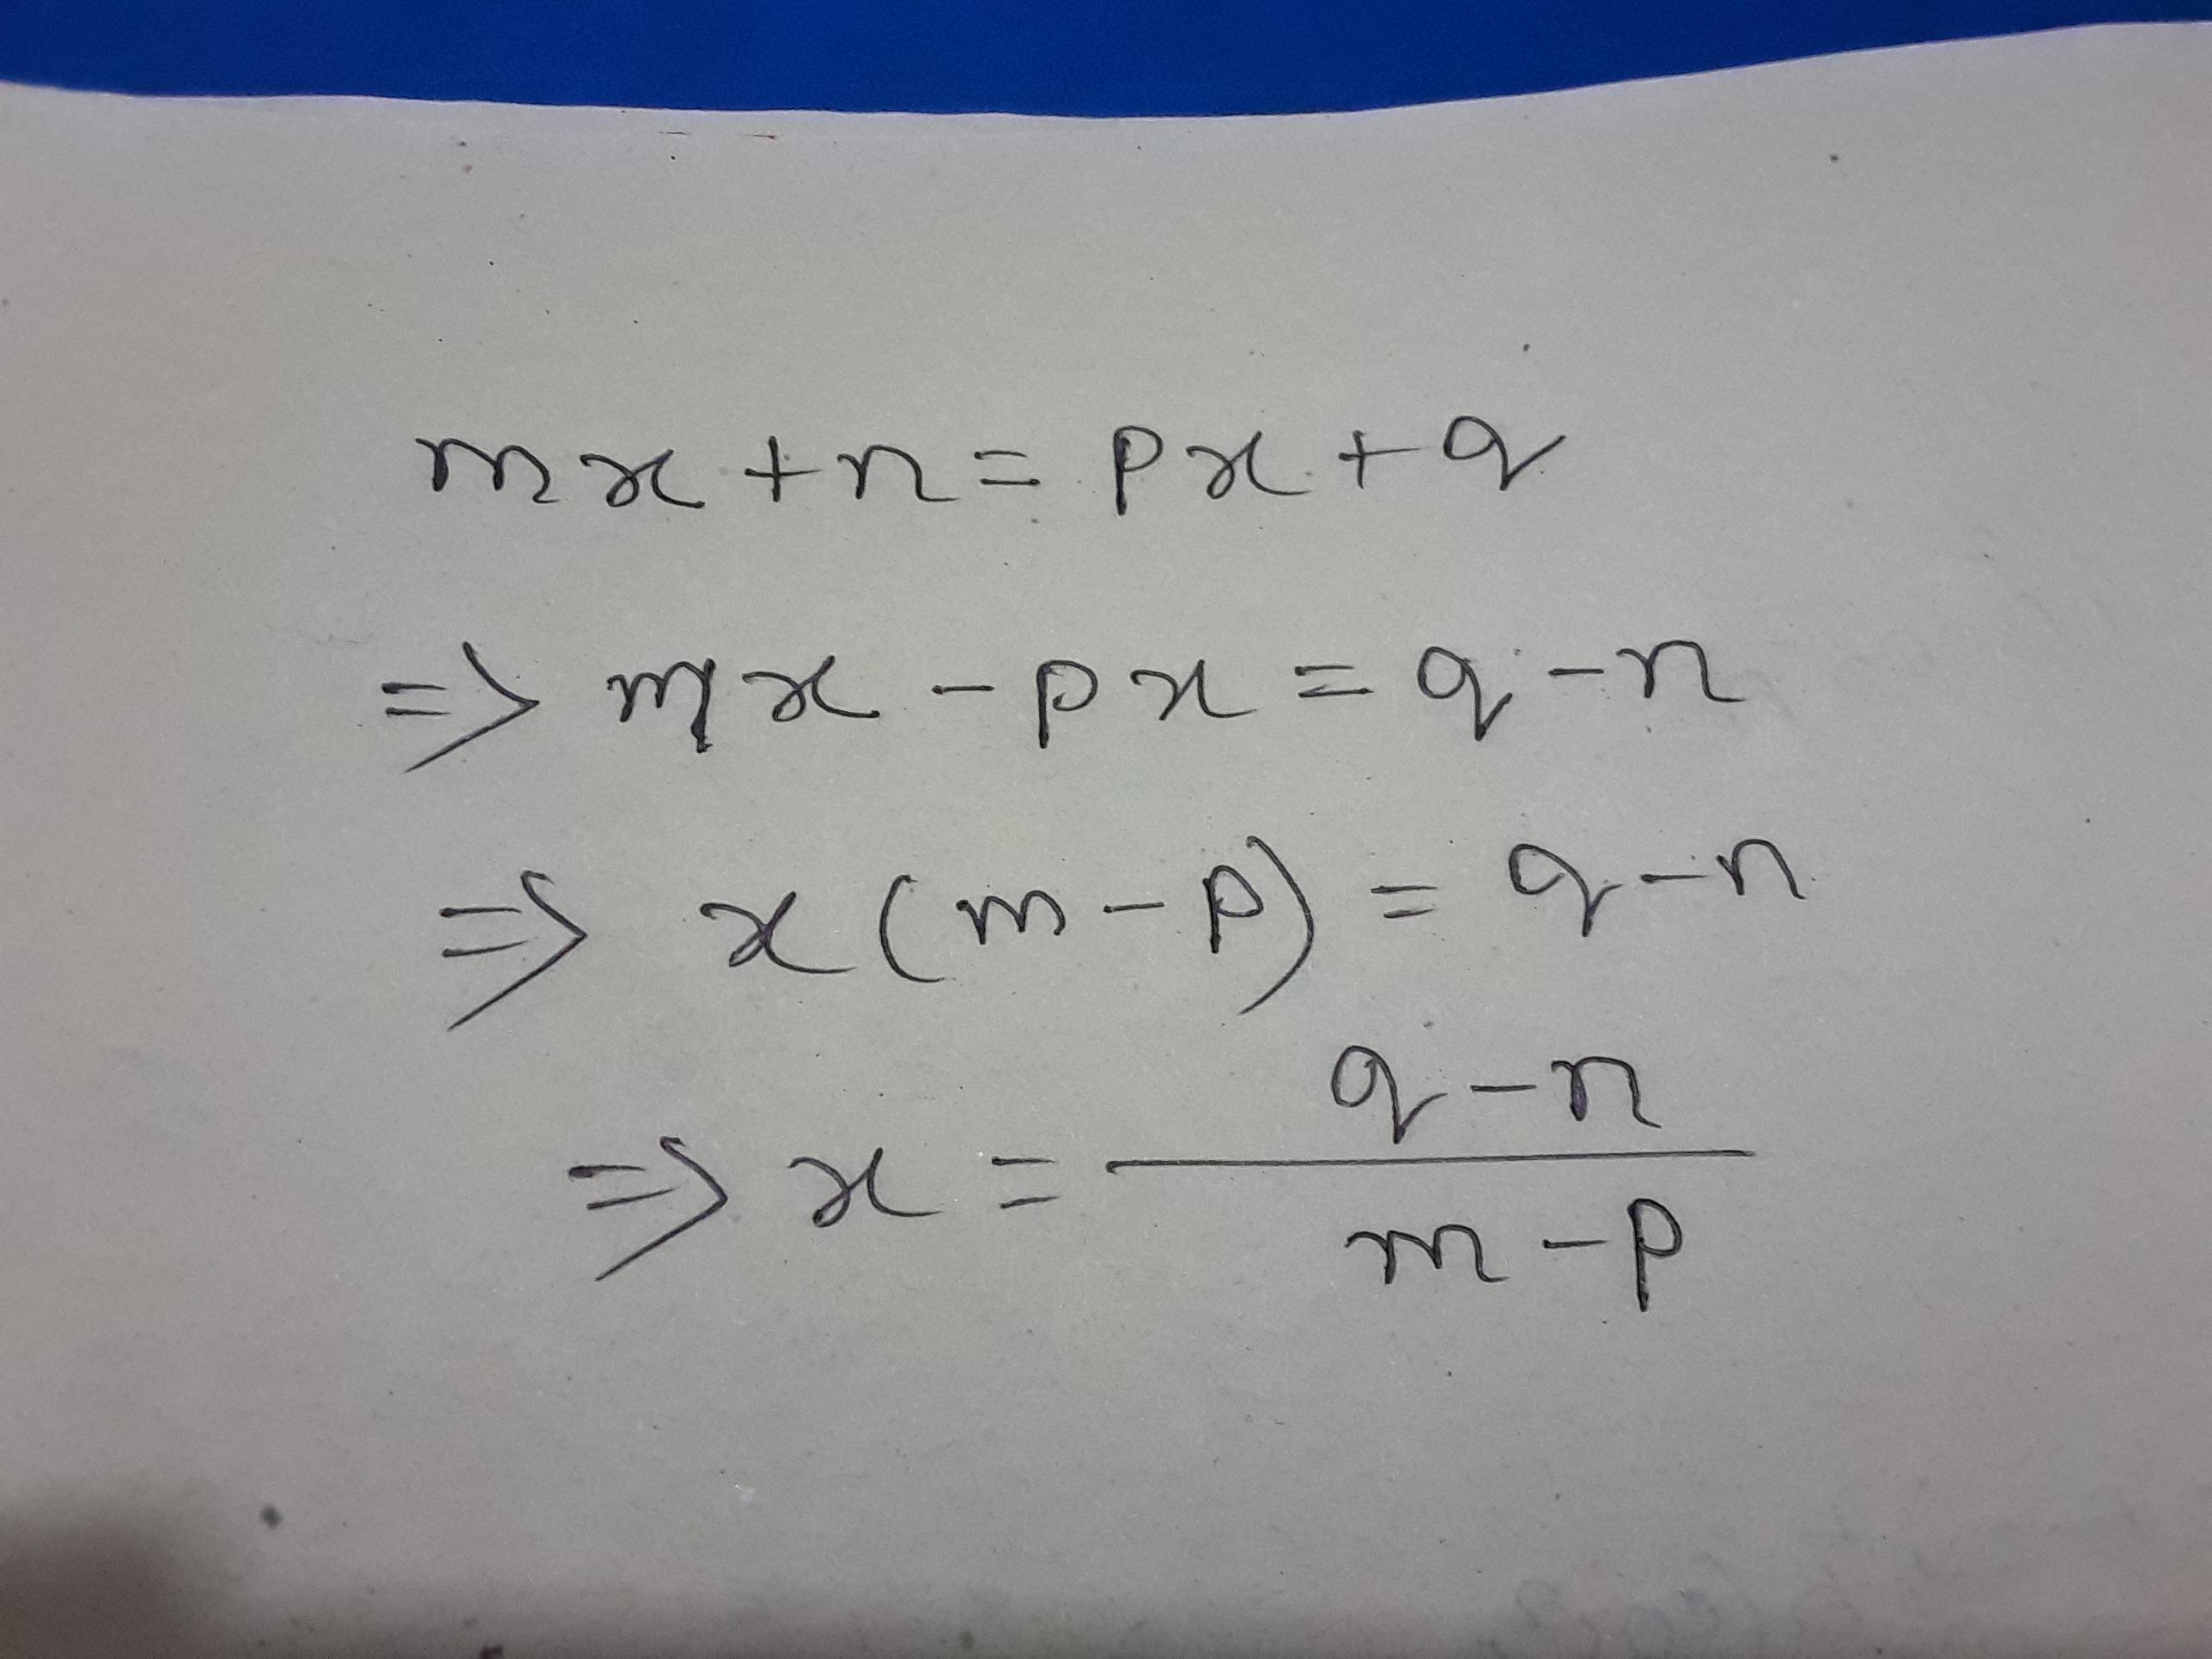 mx + n = px + q
=> mx - px = q - n
=> x (m - p) = q - n
=> x = \frac{q - n}{m - p}